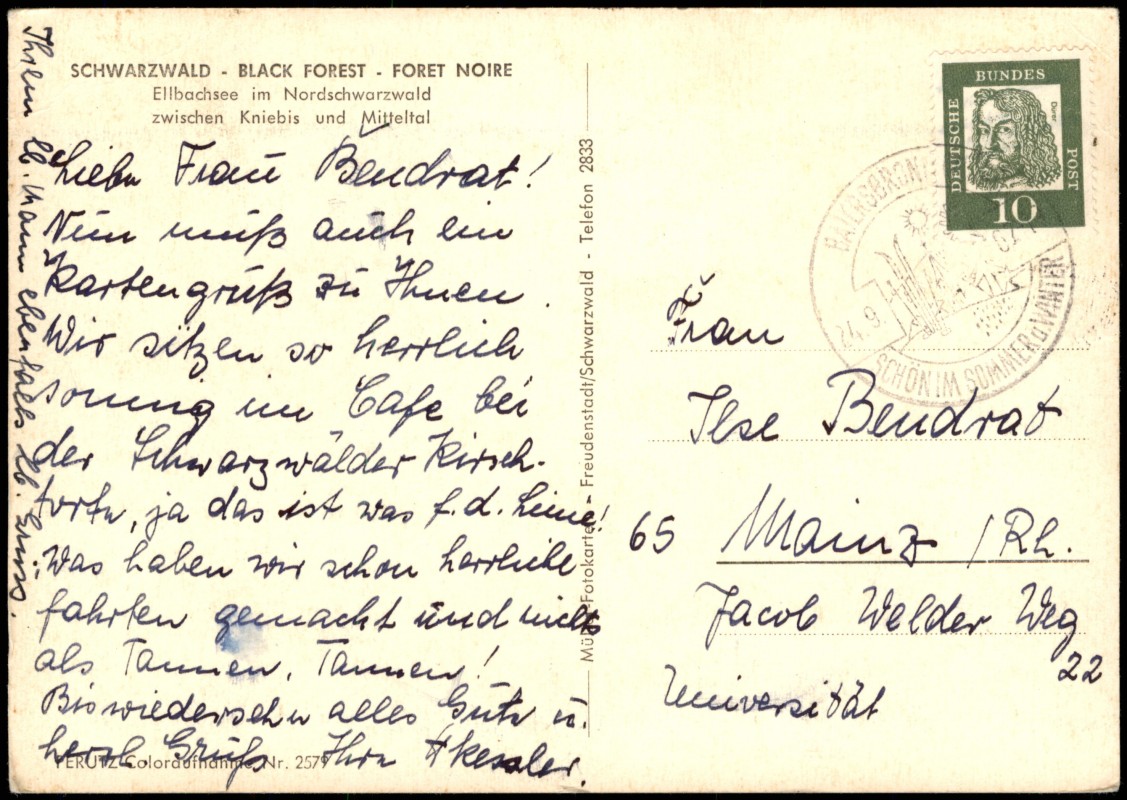 SCHWARZWALD - BLACK FOREST - FORET NOIRE
Ellbachsee im Nordschwarzwald
zwischen Kniebis und Mitteltal
Liebe Frau Bendrat!
Nun muß auch ein
Kartengruß zu Ihnen.
Wir sitzen so herrlich
sonnig im Cafe bei
der Schwarzwälder Kirsch-
torte, ja das ist was f. d. Linie!
Was haben wir schon herrliche
fahrten gemacht und nichts
als Tannen, Tannen!
Bis wiedersehn alles Gute u.
herzl. Gruß Ihre Kessler.
Ihrem lb. Mann ebenfalls lb. Gruss.
PERUTZ-Coloraufnahme Nr. 2579
Fotokarten - Freudenstadt/Schwarzwald - Telefon 2833
DEUTSCHE BUNDES POST
Dürer
10
BAIERSBRONN
24.9.
SCHÖN IM SOMMER u. WINTER
Frau
Ilse Bendrat
65 Mainz / Rh.
Jacob Welder Weg
22
Universität